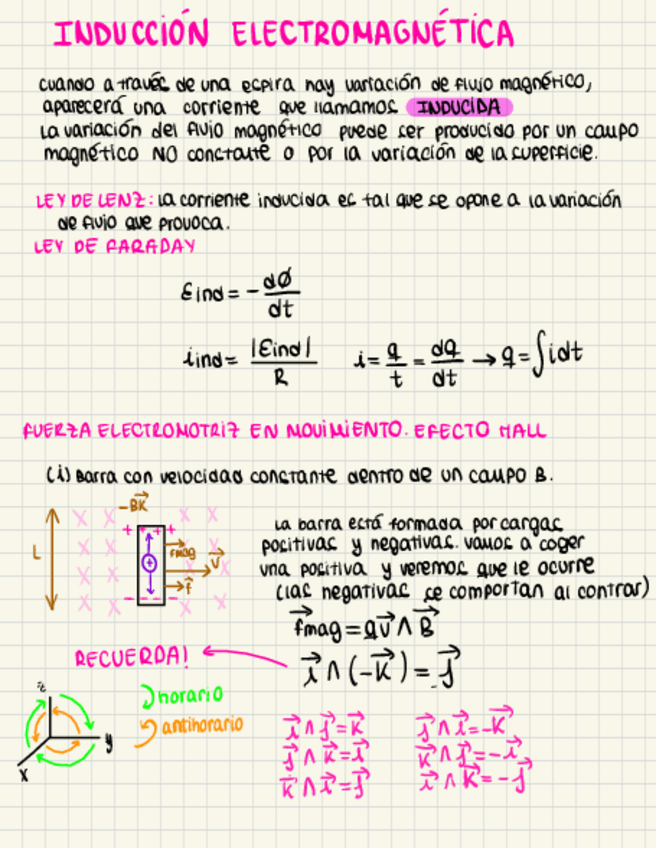 INDUCCIÓN ELECTROMAGNÉTICA
cuando a través de una espira hay variación de flujo magnético,
aparecerá una corriente que llamamos INDUCIDA
La variación del flujo magnético puede ser producido por un campo
magnético NO constante o por la variación de la superficie.
LEY DE LENZ: la corriente inducida es tal que se opone a la variación
de flujo que provoca.
LEY DE FARADAY
εind = - dø/dt
iind = |εind|/R   i = q/t = dq/dt → q = ∫idt
FUERZA ELECTROMOTRIZ EN MOVIMIENTO. EFECTO HALL
(i) Barra con velocidad constante dentro de un campo B.
-BK⃗
L
+ + + +
fmag
v⃗
f⃗
- - - -
La barra está formada por cargas
positivas y negativas. vamos a coger
una positiva y veremos que le ocurre
(las negativas se comportan al contrar)
f⃗mag = qv⃗ ∧ B⃗
RECUERDA!
i⃗ ∧ (-k⃗) = j⃗
z
y
x
horario
antihorario
i⃗ ∧ j⃗ = k⃗   j⃗ ∧ i⃗ = -k⃗
j⃗ ∧ k⃗ = i⃗   k⃗ ∧ j⃗ = -i⃗
k⃗ ∧ i⃗ = j⃗   i⃗ ∧ k⃗ = -j⃗